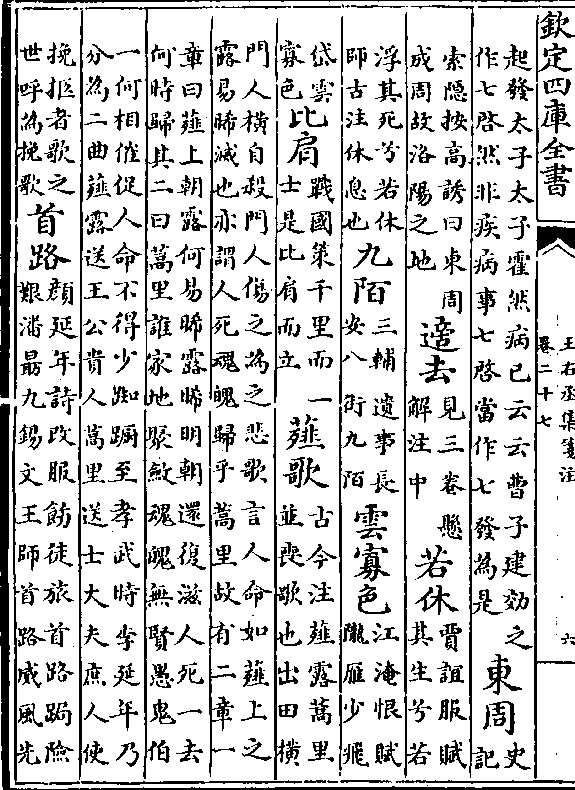 欽定四庫全書
王右丞集箋注
卷二十七
六
起發太子太子霍然病已云云曹子建効之
作七啓然非疾病事七啓當作七發為是
東周
史
記
索隱按高誘曰東周
成周故洛陽之地
適去
見三卷懸
解注中
若休
賈誼服賦
其生兮若
浮其死兮若休
師古注休息也
九陌
三輔遺事長
安八街九陌
雲寡色
江淹恨賦
隴雁少飛
岱雲
寡色
比肩
戰國策千里而一
士是比肩而立
薤歌
古今注薤露蒿里
並喪歌也出田橫
門人橫自殺門人傷之為之悲歌言人命如薤上之
露易晞滅也亦謂人死魂魄歸乎蒿里故有二章一
章曰薤上朝露何易晞露晞明朝還復滋人死一去
何時歸其二曰蒿里誰家地聚斂魂魄無賢愚鬼伯
一何相催促人命不得少踟蹰至孝武時李延年乃
分為二曲薤露送王公貴人蒿里送士大夫庶人使
挽柩者歌之
世呼為挽歌
首路
顏延年詩改服飭徒旅首路跼險
艱潘勗九錫文王師首路威風先